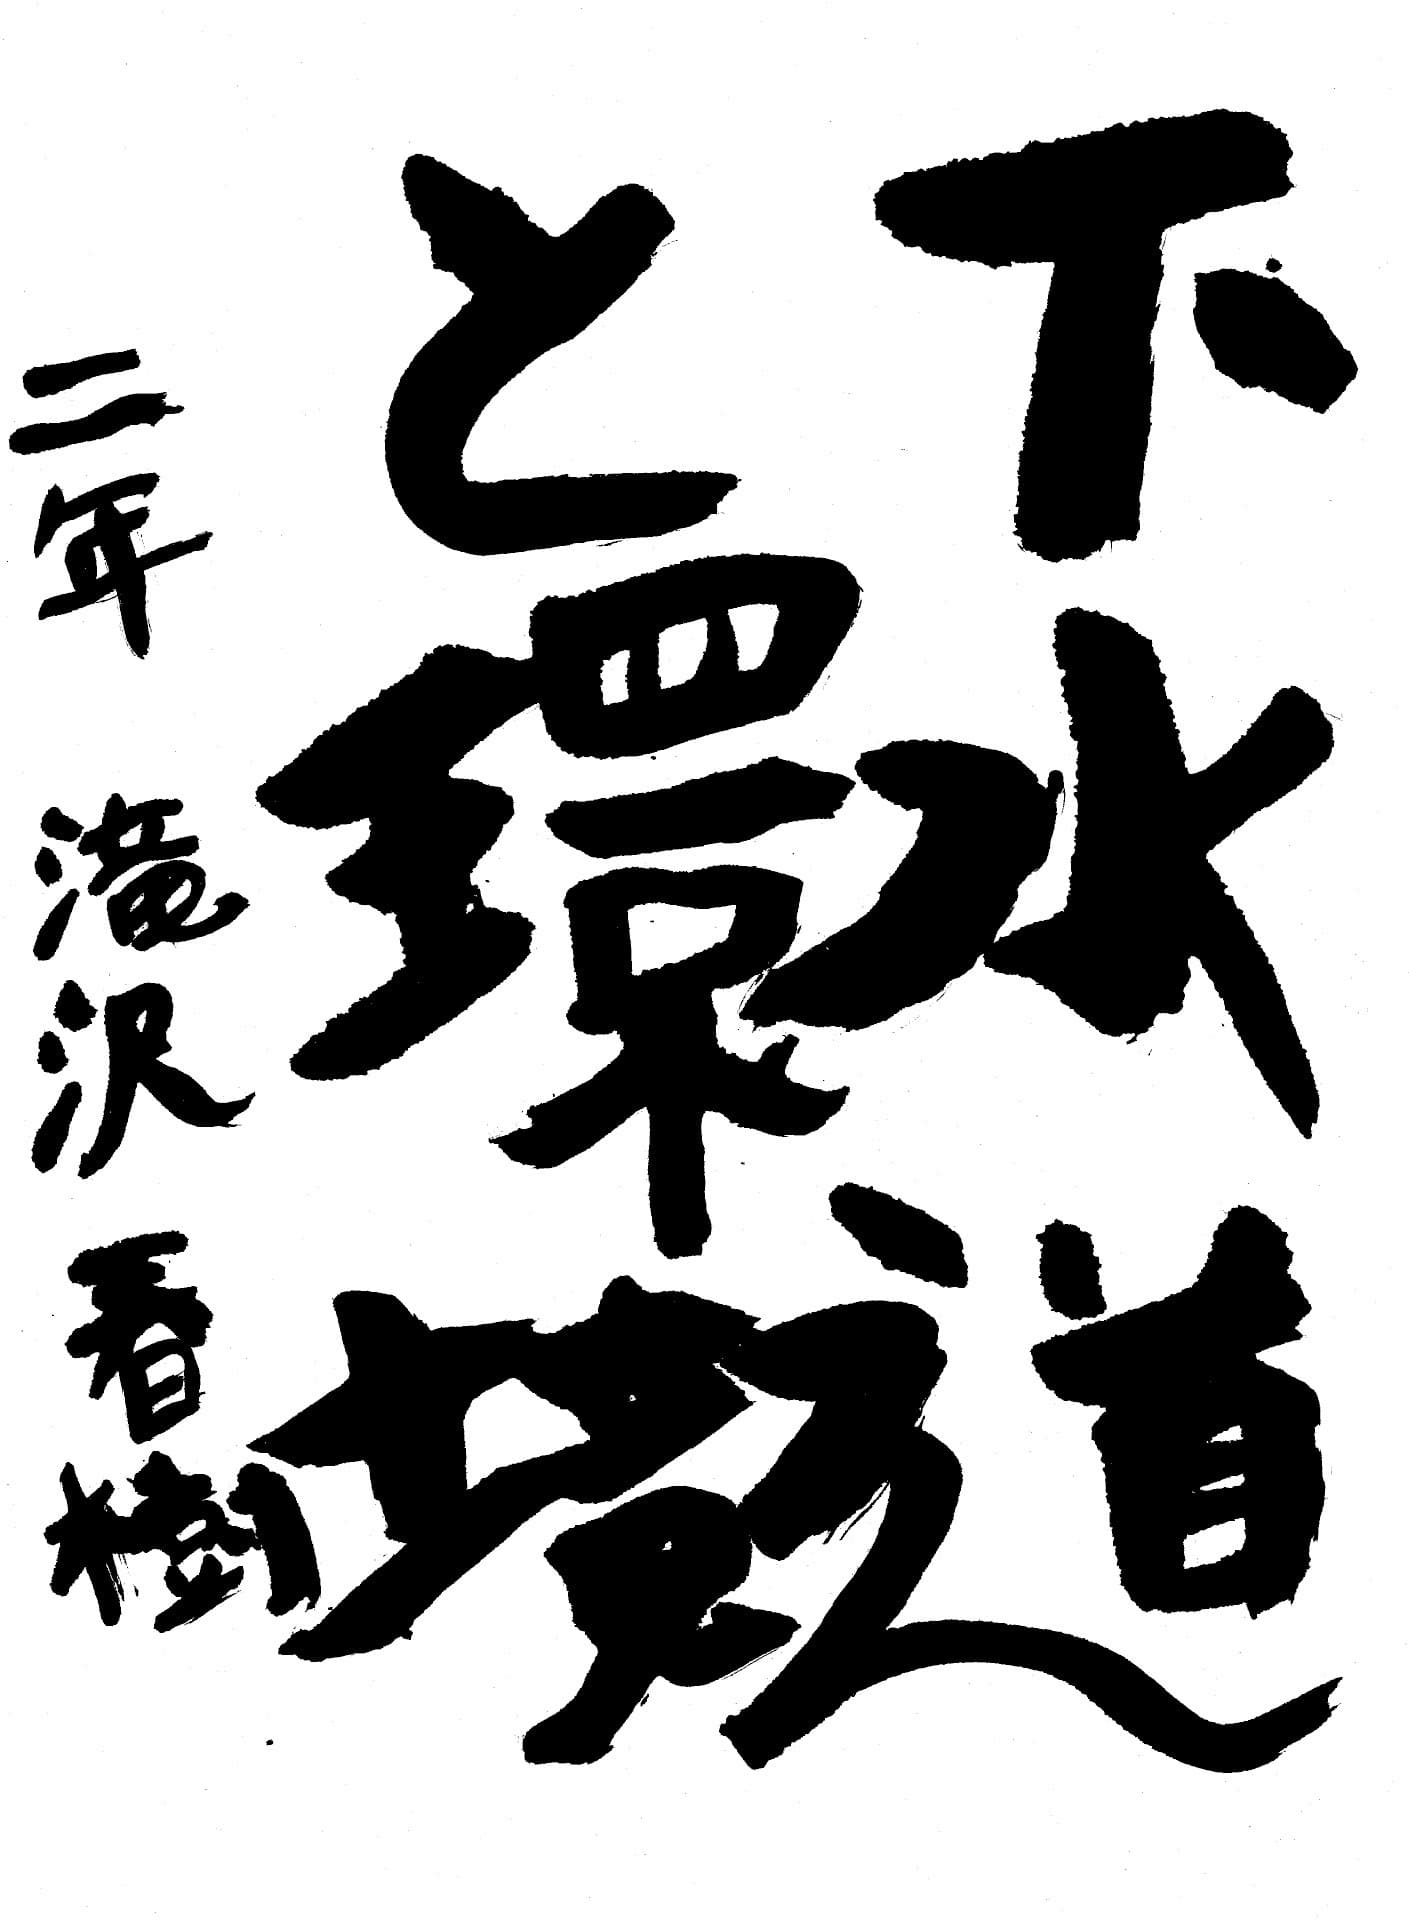 下水道
と環境
二年 滝沢 春樹